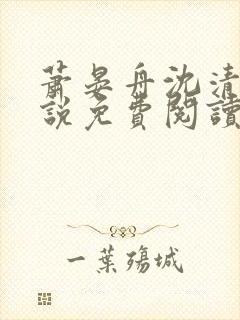 蕭晏舟沈清
說免費閱讀
一葉殤城